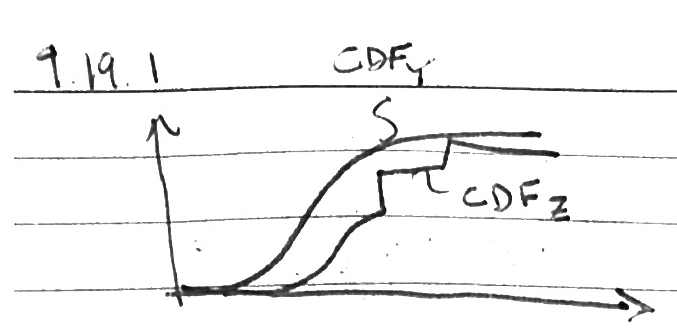 9.19.1
CDF_Y
CDF_Z